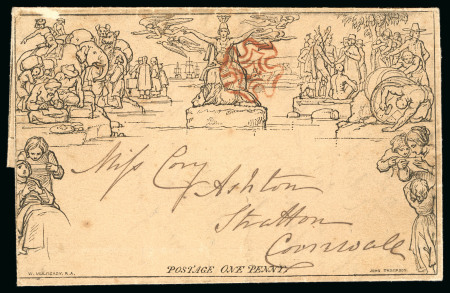 Miss Cory
Ashton
Stratton
Cornwall
POSTAGE ONE PENNY.
W. MULREADY, R.A.
JOHN THOMPSON